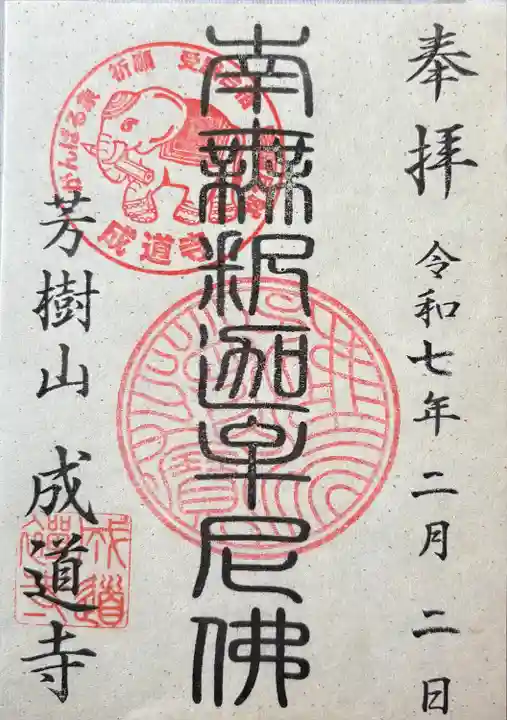 奉拝
令和七年 二月 二日
南無釈迦牟尼佛
祈願
がんばる象
成道寺
芳樹山 成道寺
成道